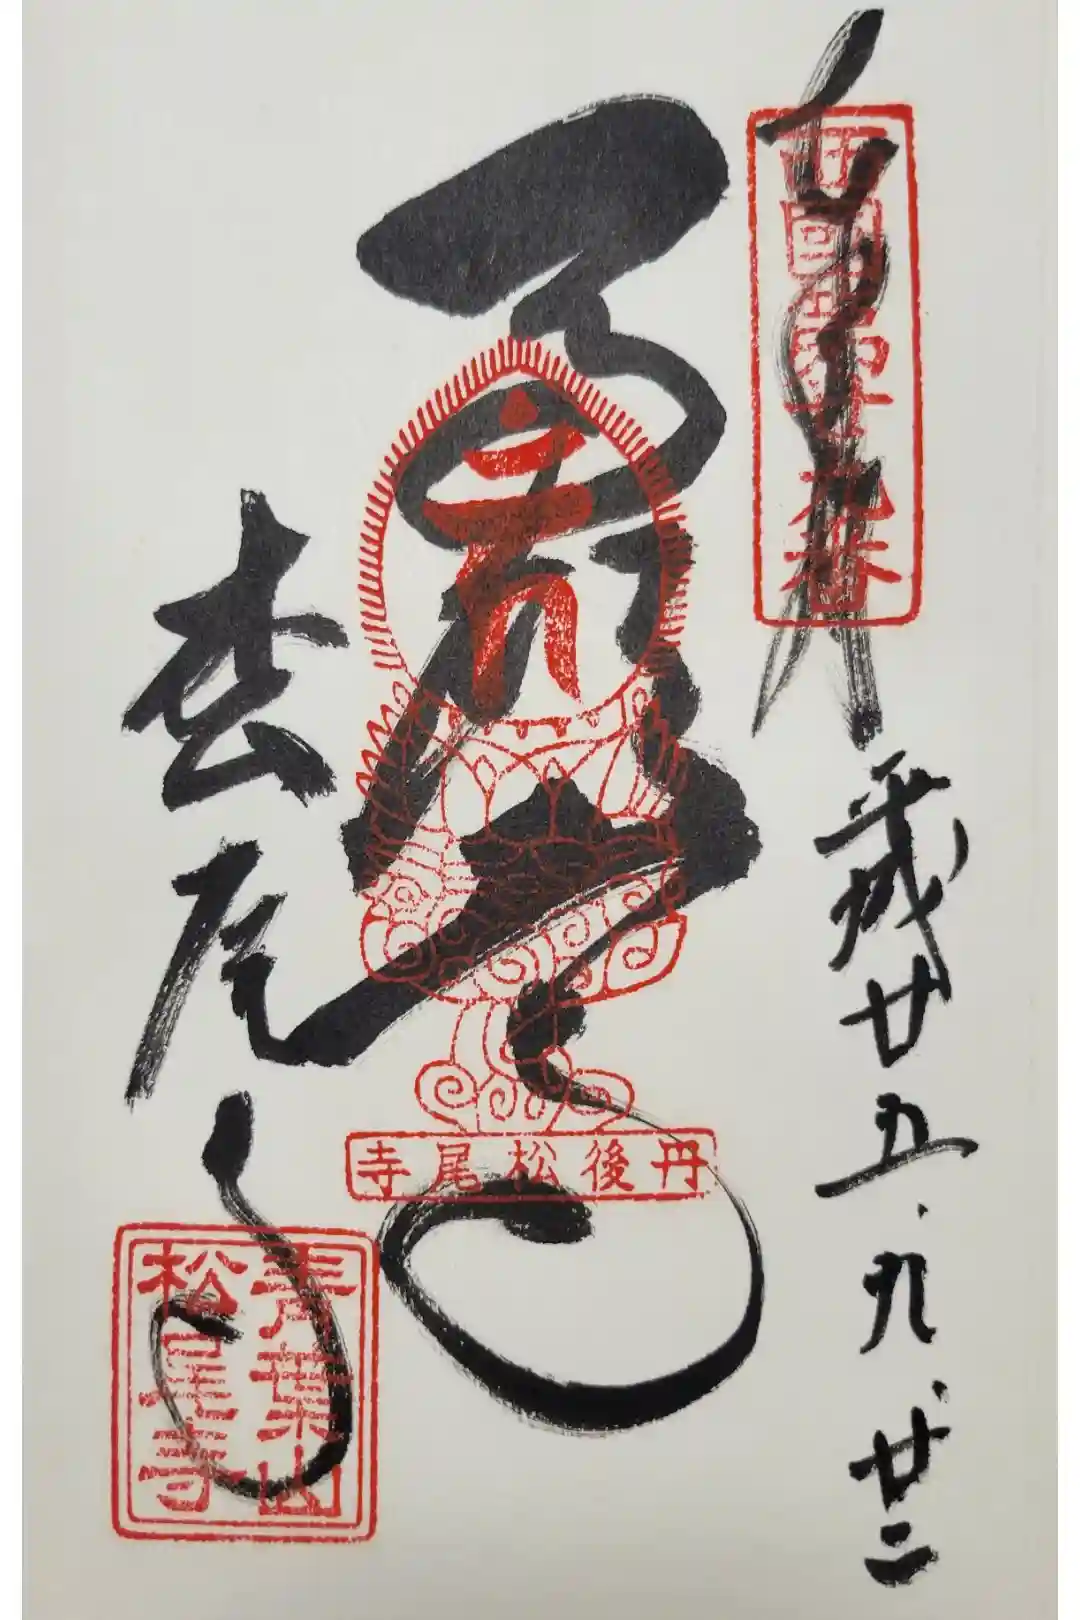 奉拝
西國第廿九番
平成廿五、九、廿二
丹後松尾寺
松尾寺
青葉山
松尾寺